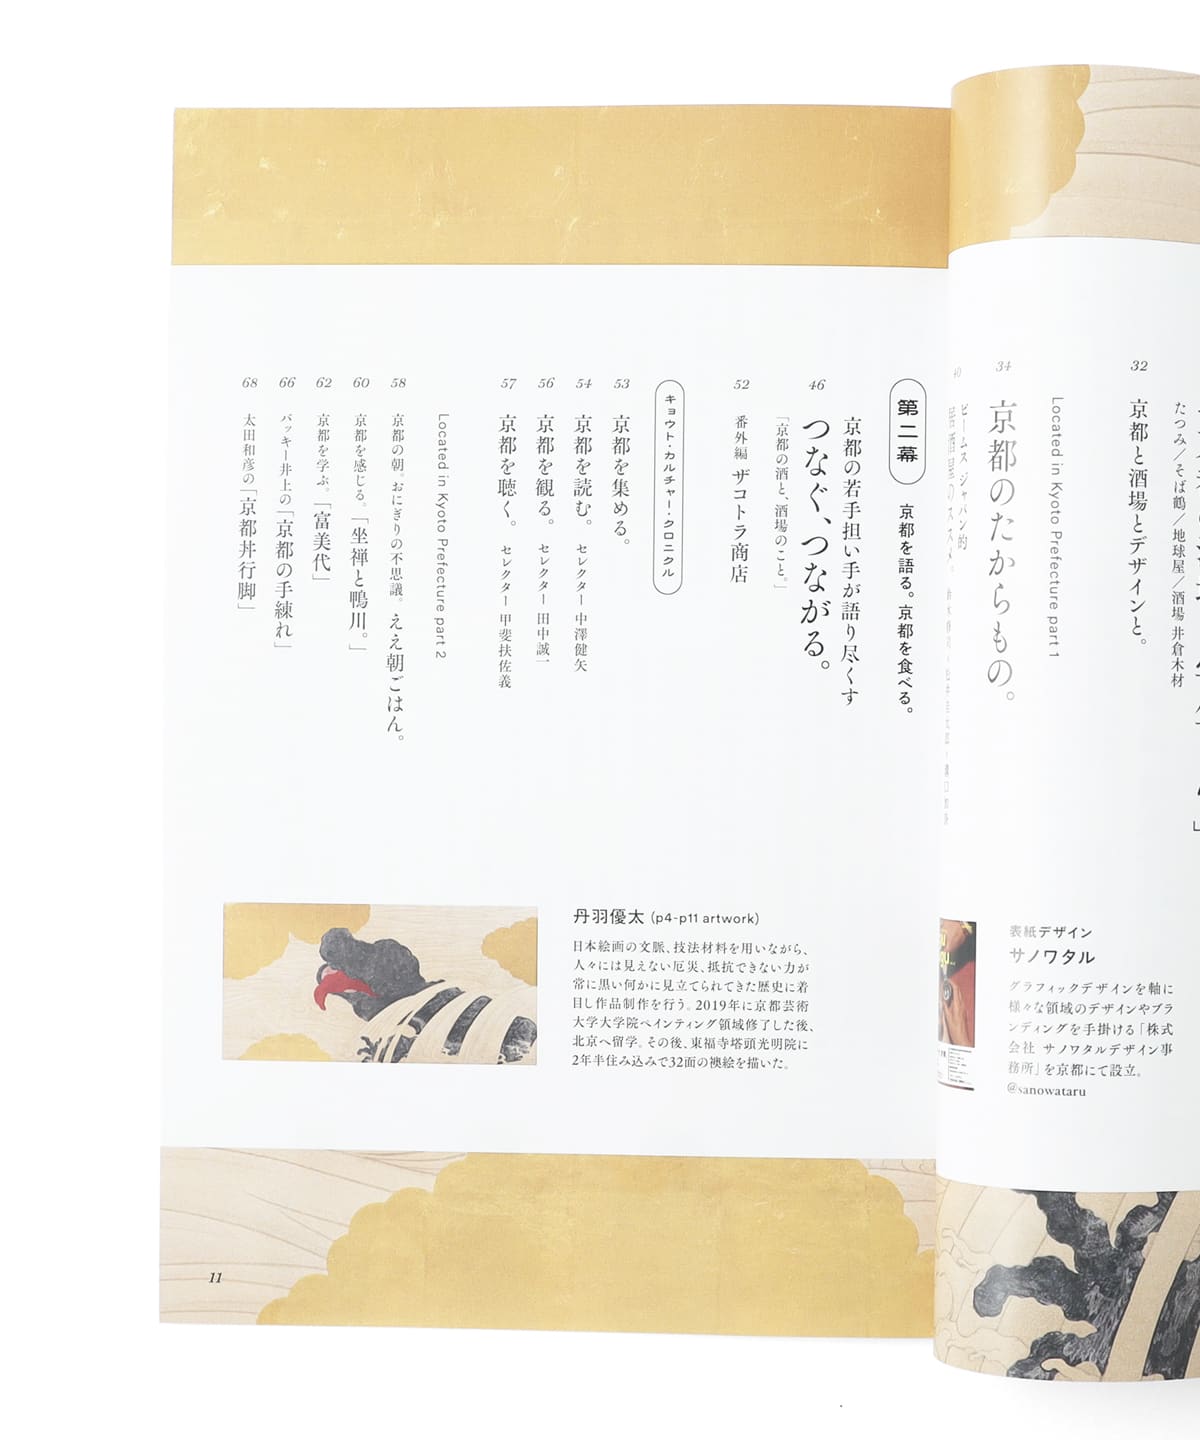 32
京都と酒場とデザインと。
たつみ／そば鶴／地球屋／酒場 井倉木材
Located in Kyoto Prefecture part 1
34
京都のたからもの。
40
ビームス ジャパン的
居酒屋のススメ。
表紙デザイン
サノワタル
グラフィックデザインを軸に
様々な領域のデザインやブラ
ンディングを手掛ける「株式
会社 サノワタルデザイン事
務所」を京都にて設立。
@sanowataru
第二幕
京都を語る。京都を食べる。
46
京都の若手担い手が語り尽くす
つなぐ、つながる。
「京都の酒と、酒場のこと。」
52
番外編 ザコトラ商店
キョウト・カルチャー・クロニクル
53
京都を集める。
54
京都を読む。 セレクター 中澤健矢
56
京都を観る。 セレクター 田中誠一
57
京都を聴く。 セレクター 甲斐扶佐義
Located in Kyoto Prefecture part 2
58
京都の朝。おにぎりの不思議。 ええ朝ごはん。
60
京都を感じる。「坐禅と鴨川。」
62
京都を学ぶ。「富美代」
66
バッキー井上の「京都の手練れ」
68
太田和彦の「京都丼行脚」
丹羽優太 (p4-p11 artwork)
日本絵画の文脈、技法材料を用いながら、
人々には見えない厄災、抵抗できない力が
常に黒い何かに見立てられてきた歴史に着
目し作品制作を行う。2019年に京都芸術
大学大学院ペインティング領域修了した後、
北京へ留学。その後、東福寺塔頭光明院に
2年半住み込みで32面の襖絵を描いた。
11